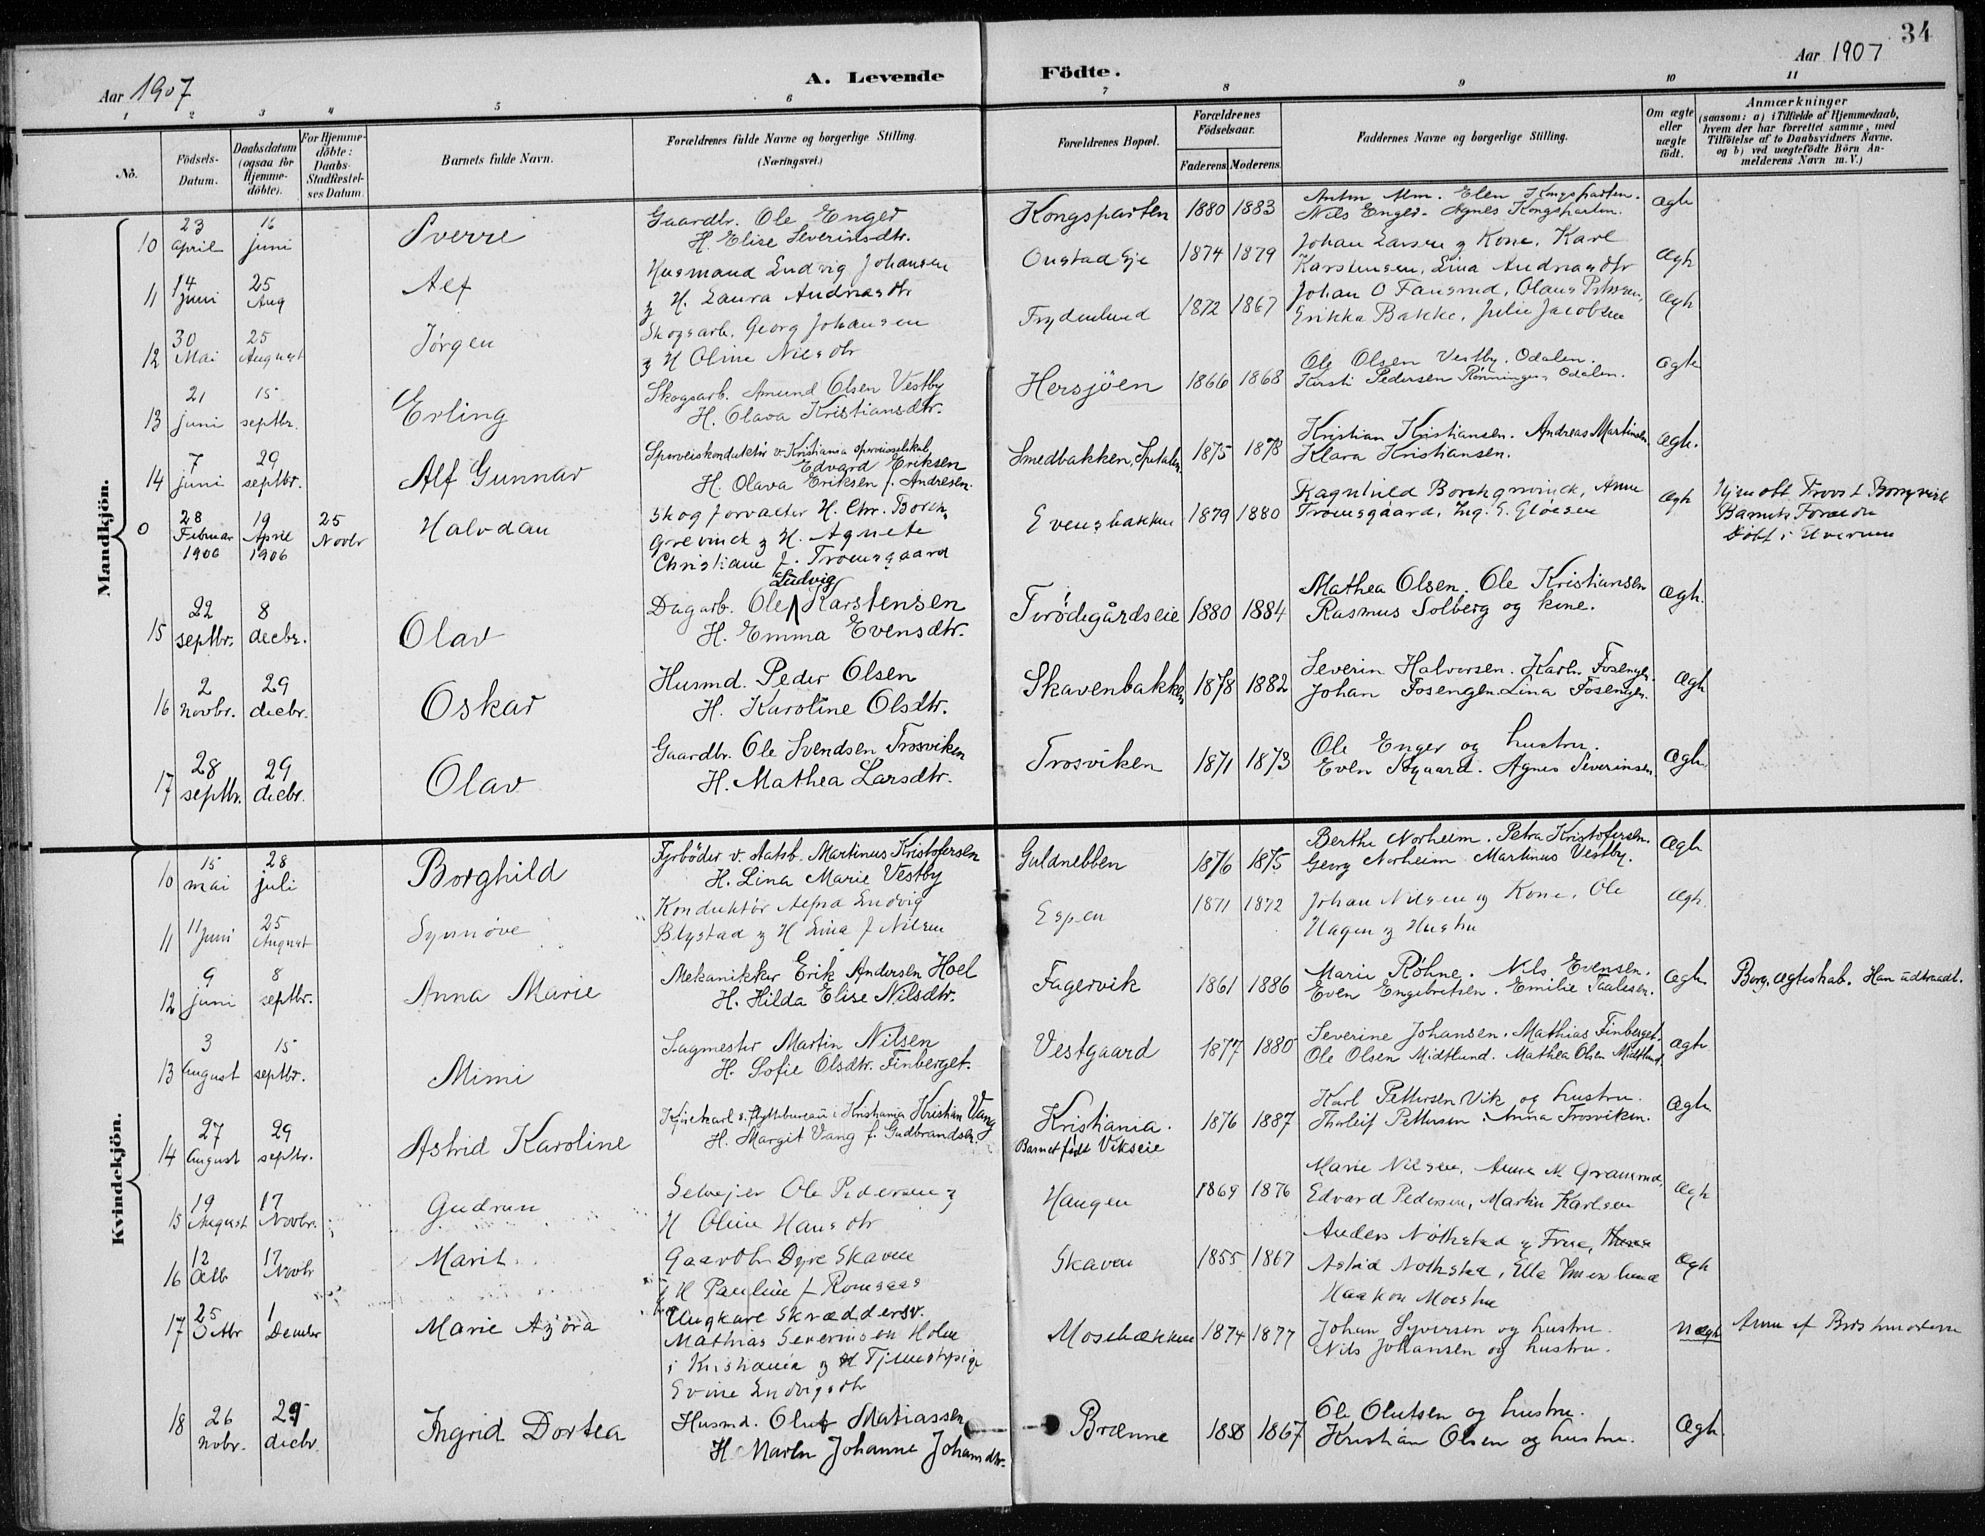 34
Aar 1907
A. Levende Födte.
Aar 1907
1 2 3 4 5 6 7 8 9 10 11
No.
Födsels-Datum.
Daabsdatum (ogsaa for Hjemme-döbte).
For Hjemme-döbte: Daabs-Stadfæstel-ses Datum.
Barnets fulde Navn.
Forældrenes fulde Navne og borgerlige Stilling.
(Næringsvei.)
Forældrenes Bopæl.
Forældrenes Födselsaar.
Faderens. Moderens.
Faddernes Navne og borgerlige Stilling.
Om ægte eller uægte födt.
Anmærkninger
(saasom: a) i Tilfælde af Hjemmedaab, hvem der har forrettet samme, med Tilföielse af to Daabsvidners Navne. og b) ved uægtefödte Börn An-melderens Navn m. V.)
Mandkjön.
10 23 april 16 juni Sverre Gaardbr. Ole Enger
H. Elise Severinsdtr. Kongsparten 1880 1883 Elen Kongsparten.
Nils Enger. Agnes Kongsparten. Ægte
11 14 Juni 25 Aug Alf Husmand Ludvig Johansen
og H. Laura Andreasdtr Onstad Eje 1874 1879 Johan Larsen og Kone, Karl
Karstensen, Lina Andreasdtr Ægte
12 30 Mai 25 August Jørgen Skogsarb. Georg Johansen
og H Oline Nilsdtr Frydenlund 1872 1867 Johan O Fausrud, Olaus Petersen,
Erikka Bakke, Julie Jacobsen Ægte
13 21 juni 15 septbr. Erling Skogsarb. Amund Olsen Vestby
H. Olava Kristiansdtr. Hersjöen 1866 1868 Ole Olsen Vestby. Odalen.
Kersti Pedersen Rønningen, Odalen. Ægte
14 7 juni 29 septbr. Alf Gunnar Sporveiskonduktör v. Kristiania Sporveisselskab
Edvard Eriksen
H. Olava Eriksen f. Andresen. Smedbakken, Spetalen 1875 1878 Kristian Kristiansen. Andreas Martinsen
Klara Kristiansen. Ægte.
0 28 Februar 1906 19 April 1906 25 Novbr Halvdan Skogforvalter H. Chr. Borch
grevinck og H. Agnete
Christiane f. Troensgaard Evensbakken 1879 1880 Ragnhild Borchgrevinck, Anne
Troensgaard, Ing. S. Gløersen Ægte Hjemdöbt
Barnets Forældre
Döbt i Elverum
15 22 septbr. 8 decbr. Olav Dagarb. Ole Ludvig Karstensen
H. Emma Evensdtr. Tvrödegårdseie 1880 1884 Mathea Olsen. Ole Kristiansen
Rasmus Solberg og kone. Ægte.
16 2 novbr. 29 decbr. Oskar Husmd. Peder Olsen
H. Karoline Olsdtr. Skavenbakken 1878 1882 Severin Halvorsen. Karln. Fosengen.
Johan Fosengen. Lina Fosengen. Ægte
17 28 septbr. 29 decbr. Olav Gaardbr. Ole Svendsen Trosviken
H. Mathea Larsdtr. Trosviken 1871 1873 Ole Enger og hustru.
Even Sögaard. Agnes Severinsen Ægte.
Kvindekjön.
10 15 mai 28 juli Borghild Fyrböder v. Aatsb. Martinus Kristofersen
H. Lina Marie Vestby Guldnebben 1876 1875 Berthe Norheim. Petra Kristofersen.
Georg Norheim Martinus Vestby. Ægte
11 11 juni 25 August Synnöve Konduktör Alfred Ludvig
Blystad og H Lina f Nilsen Espen 1871 1872 Johan Nilsen og Kone, Ole
Hagen og Hustru Ægte
12 9 juni 8 septbr. Anna Marie Mekanikker Erik Andersen Hoel
H. Hilda Elise Nilsdtr. Fagervik 1861 1886 Marie Röhne. Nils Evensen.
Even Engebretsen. Emilie Paulsen. Ægte Borg. Ægteskab. Han udtraadt.
13 3 August 15 septbr. Mimi Sagmester Martin Nilsen
H. Sofie Olsdtr. Finberget. Vestgaard 1877 1880 Severine Johansen. Mathias Finberget.
Ole Olsen Midtlund. Mathea Olsen Midtlund. Ægte
14 27 August 29 septbr. Astrid Karoline Kjörekarl v. flyttebureau i Kristiania Kristian Vang
H. Margit Vang f. Gudbrandsen. Kristiania.
Barnet födt Vikseie 1876 1887 Karl Pettersen Vik og hustru.
Thorleif Pettersen. Anna Trosviken. Ægte
15 19 August 17 Novbr. Gudrun Selvejer Ole Pedersen og
H Oline Hansdtr Haugen 1869 1876 Marie Nilsen, Anne M
Edvard Pedersen, Martin Karlsen Ægte
16 12 17 Novbr Marit Gaardbr Dyre Skaven
og H Pauline f Romsaas Skaven 1855 1867 Anders Nóthstad og Frue,
Astrid Nothstad, Ella
Haakon Ægte
17 25 Oktbr 1 December Marie Azóra Ungkarl Skræddersv.
Mathias Severinsen Holm
i Kristiania og Tjenestepige
Evine Ludvigsdtr Mosebækken 1874 1877 Johan Syversen og hustru.
Nils Johansen og hustru. Uægte Anm af Barnets moder
18 26 novbr. 29 decbr. Ingrid Dortea Husmd. Oluf Matiassen
H. Maren Johanne Johansdtr. Brænne 1858 1867 Ole Olufsen og hustru.
Kristian Olsen og hustru. Ægte.